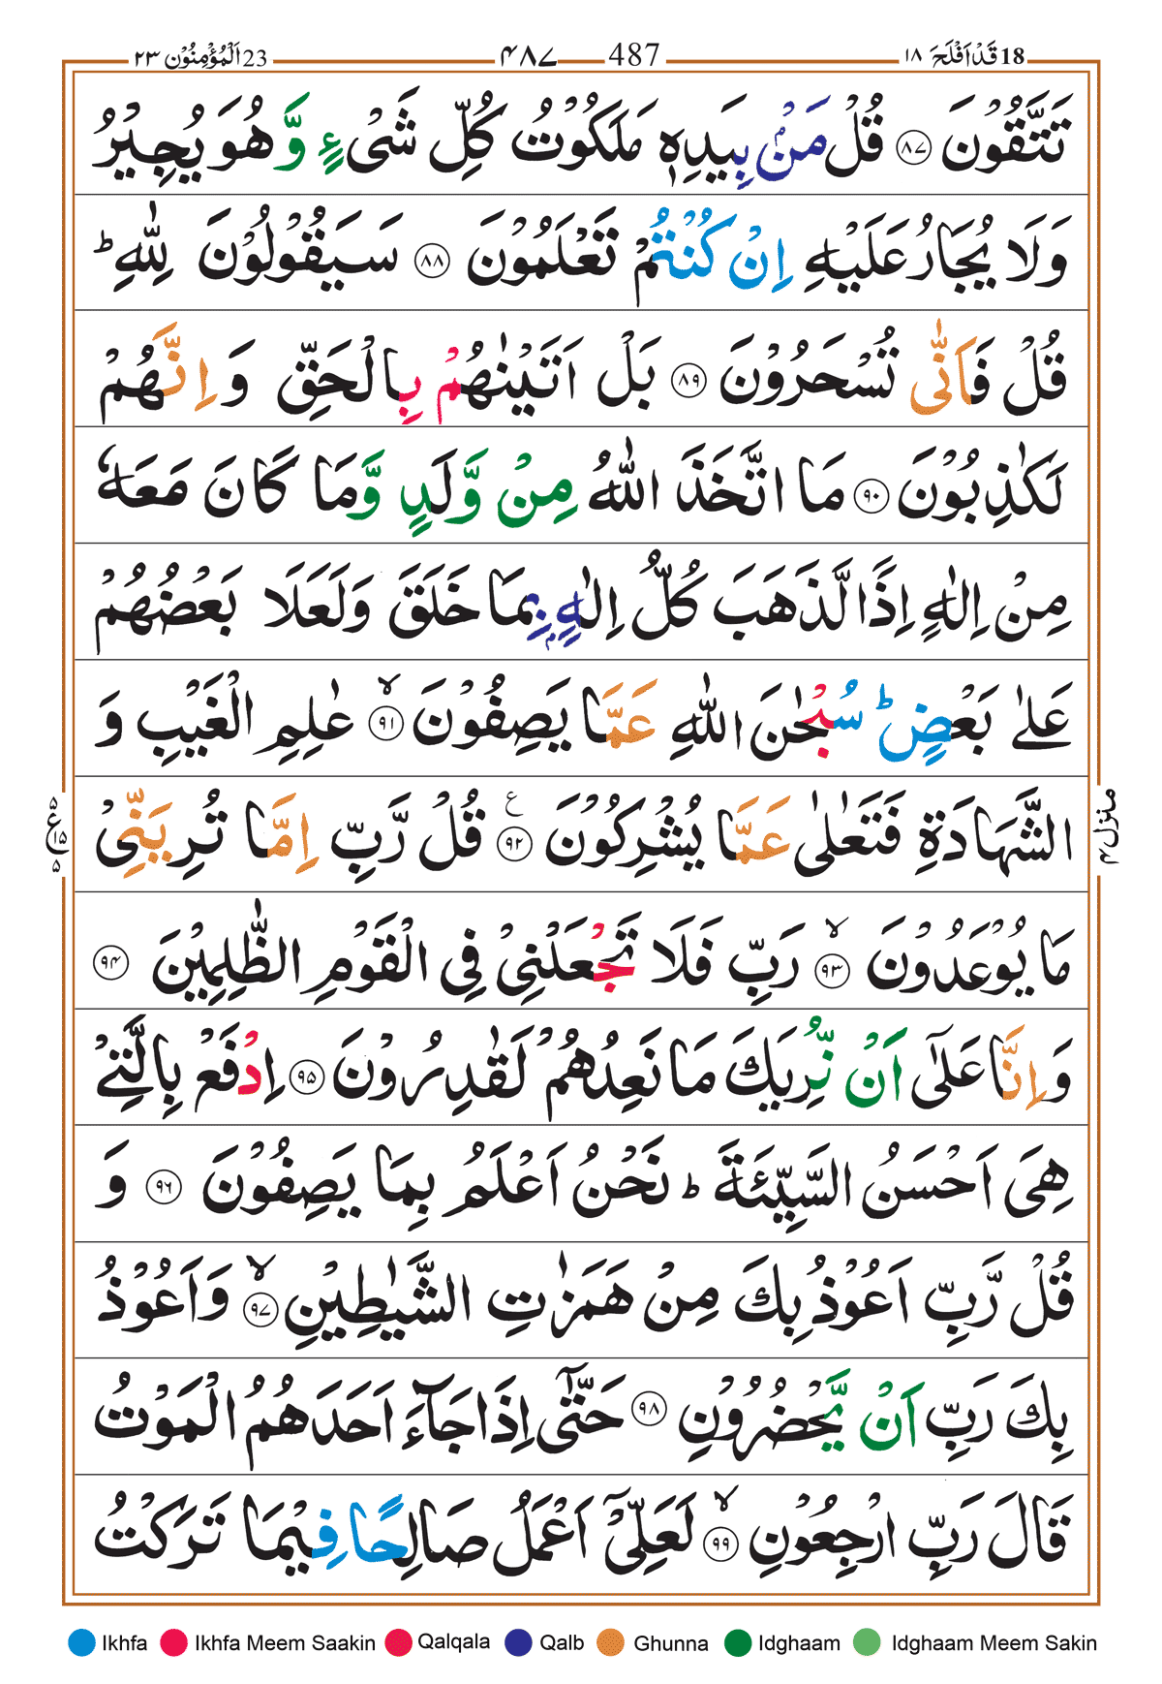 18 قَدْ اَفْلَحَ ١٨ 487 ۴۸۷ اَلْمُؤْمِنُوْن 23 ٢٣
تَتَّقُوْنَ ۸۷ قُلْ مَنْۢ بِيَدِهٖ مَلَكُوْتُ كُلِّ شَیْءٍ وَّ هُوَ يُجِيْرُ
وَلَا يُجَارُ عَلَيْهِ اِنْ كُنْتُمْ تَعْلَمُوْنَ ۸۸ سَيَقُوْلُوْنَ لِلّٰهِ ؕ
قُلْ فَاَنّٰى تُسْحَرُوْنَ ۸۹ بَلْ اَتَيْنٰهُمْ بِالْحَقِّ وَاِنَّهُمْ
لَكٰذِبُوْنَ ۹۰ مَا اتَّخَذَ اللّٰهُ مِنْ وَّلَدٍ وَّمَا كَانَ مَعَهٗ
مِنْ اِلٰهٍ اِذًا لَّذَهَبَ كُلُّ اِلٰهٍۭ بِمَا خَلَقَ وَلَعَلَا بَعْضُهُمْ
عَلٰى بَعْضٍ ؕ سُبْحٰنَ اللّٰهِ عَمَّا يَصِفُوْنَ ۙ ۹۱ عٰلِمِ الْغَيْبِ وَ
الشَّهَادَةِ فَتَعٰلٰى عَمَّا يُشْرِكُوْنَ ع ۹۲ قُلْ رَّبِّ اِمَّا تُرِيَنِّىْ
مَا يُوْعَدُوْنَ ۙ ۹۳ رَبِّ فَلَا تَجْعَلْنِىْ فِى الْقَوْمِ الظّٰلِمِيْنَ ۹۴
وَاِنَّا عَلٰٓى اَنْ نُّرِيَكَ مَا نَعِدُهُمْ لَقٰدِرُوْنَ ۹۵ اِدْفَعْ بِالَّتِىْ
هِىَ اَحْسَنُ السَّيِّئَةَ ؕ نَحْنُ اَعْلَمُ بِمَا يَصِفُوْنَ ۹۶ وَ
قُلْ رَّبِّ اَعُوْذُ بِكَ مِنْ هَمَزٰتِ الشَّيٰطِيْنِ ۙ ۹۷ وَاَعُوْذُ
بِكَ رَبِّ اَنْ يَّحْضُرُوْنِ ۹۸ حَتّٰٓى اِذَا جَآءَ اَحَدَهُمُ الْمَوْتُ
قَالَ رَبِّ ارْجِعُوْنِ ۙ ۹۹ لَعَلِّىْٓ اَعْمَلُ صَالِحًا فِيْمَا تَرَكْتُ
منزل ۴
۵ ع ۱۵ ۵
Ikhfa Ikhfa Meem Saakin Qalqala Qalb Ghunna Idghaam Idghaam Meem Sakin